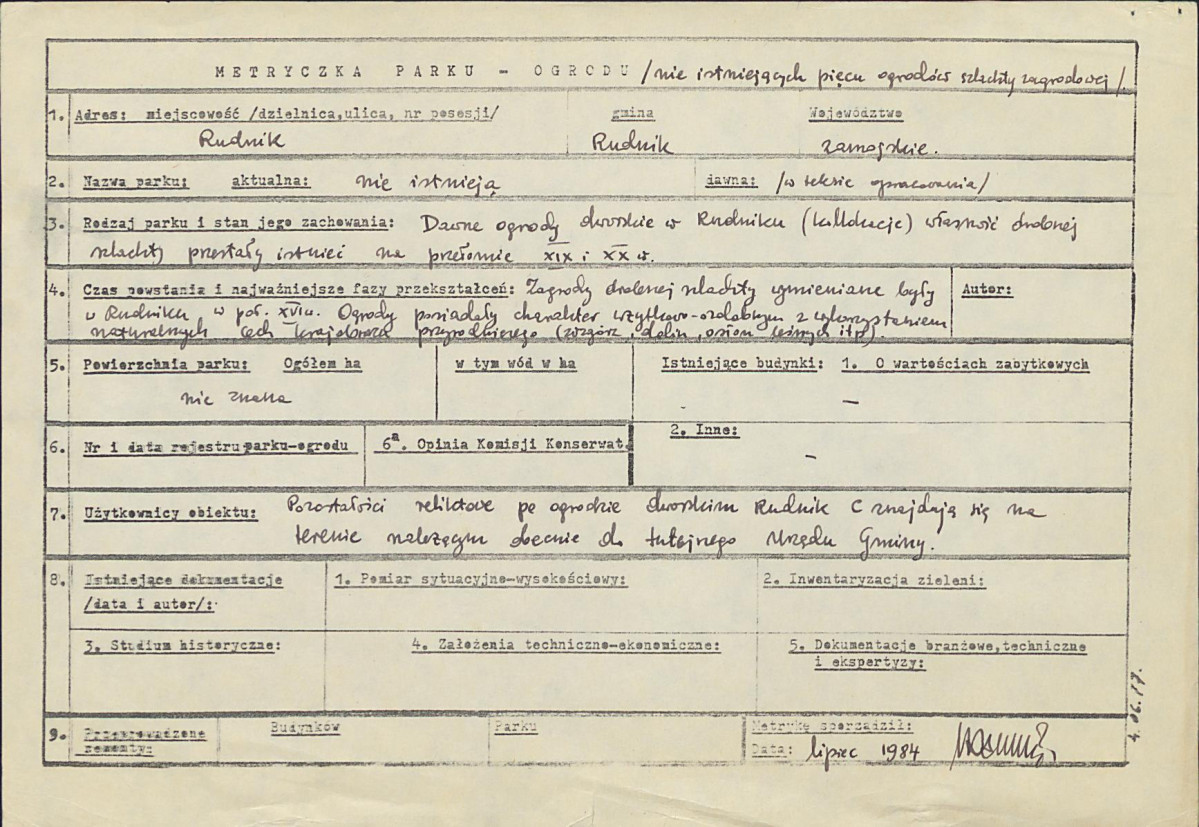 METRYCZKA PARKU - OGRODU /nie istniejących pięciu ogrodów szlachty zagrodowej/.
1. Adres: miejscowość /dzielnica,ulica, nr posesji/ gmina Województwo
Rudnik Rudnik zamojskie.
2. Nazwa parku: aktualna: nie istnieją dawna: /w tekście opracowania/
3. Rodzaj parku i stan jego zachowania: Dawne ogrody dworskie w Rudniku (kollokacje) własność drobnej
szlachty przestały istnieć na przełomie XIX i XX w.
4. Czas powstania i najważniejsze fazy przekształceń: Zagrody drobnej szlachty wymieniane były Autor:
w Rudniku w poł. XVI w. Ogrody posiadały charakter użytkowo-ozdobnym z wykorzystaniem
naturalnych cech krajobrazu przyrodniczego (wzgórz, dolin, osłon leśnych itp).
5. Powierzchnia parku: Ogółem ha w tym wód w ha Istniejące budynki: 1. O wartościach zabytkowych
nie znana —
2. Inne:
6. Nr i data rejestru parku-ogrodu 6a. Opinia Komisji Konserwat.
-
7. Użytkownicy obiektu: Pozostałości reliktowe po ogrodzie dworskim Rudnik C znajdują się na
terenie należącym obecnie do tutejszego Urzędu Gminy.
8. Istniejące dokumentacje 1. Pomiar sytuacyjno-wysokościowy: 2. Inwentaryzacja zieleni:
/data i autor/:
3. Studium historyczne: 4. Założenia techniczno-ekonomiczne: 5. Dokumentacje branżowe,techniczne
i ekspertyzy:
9. Przeprowadzone Budynków Parku Metrykę sporządził:
remonty: Data: lipiec 1984